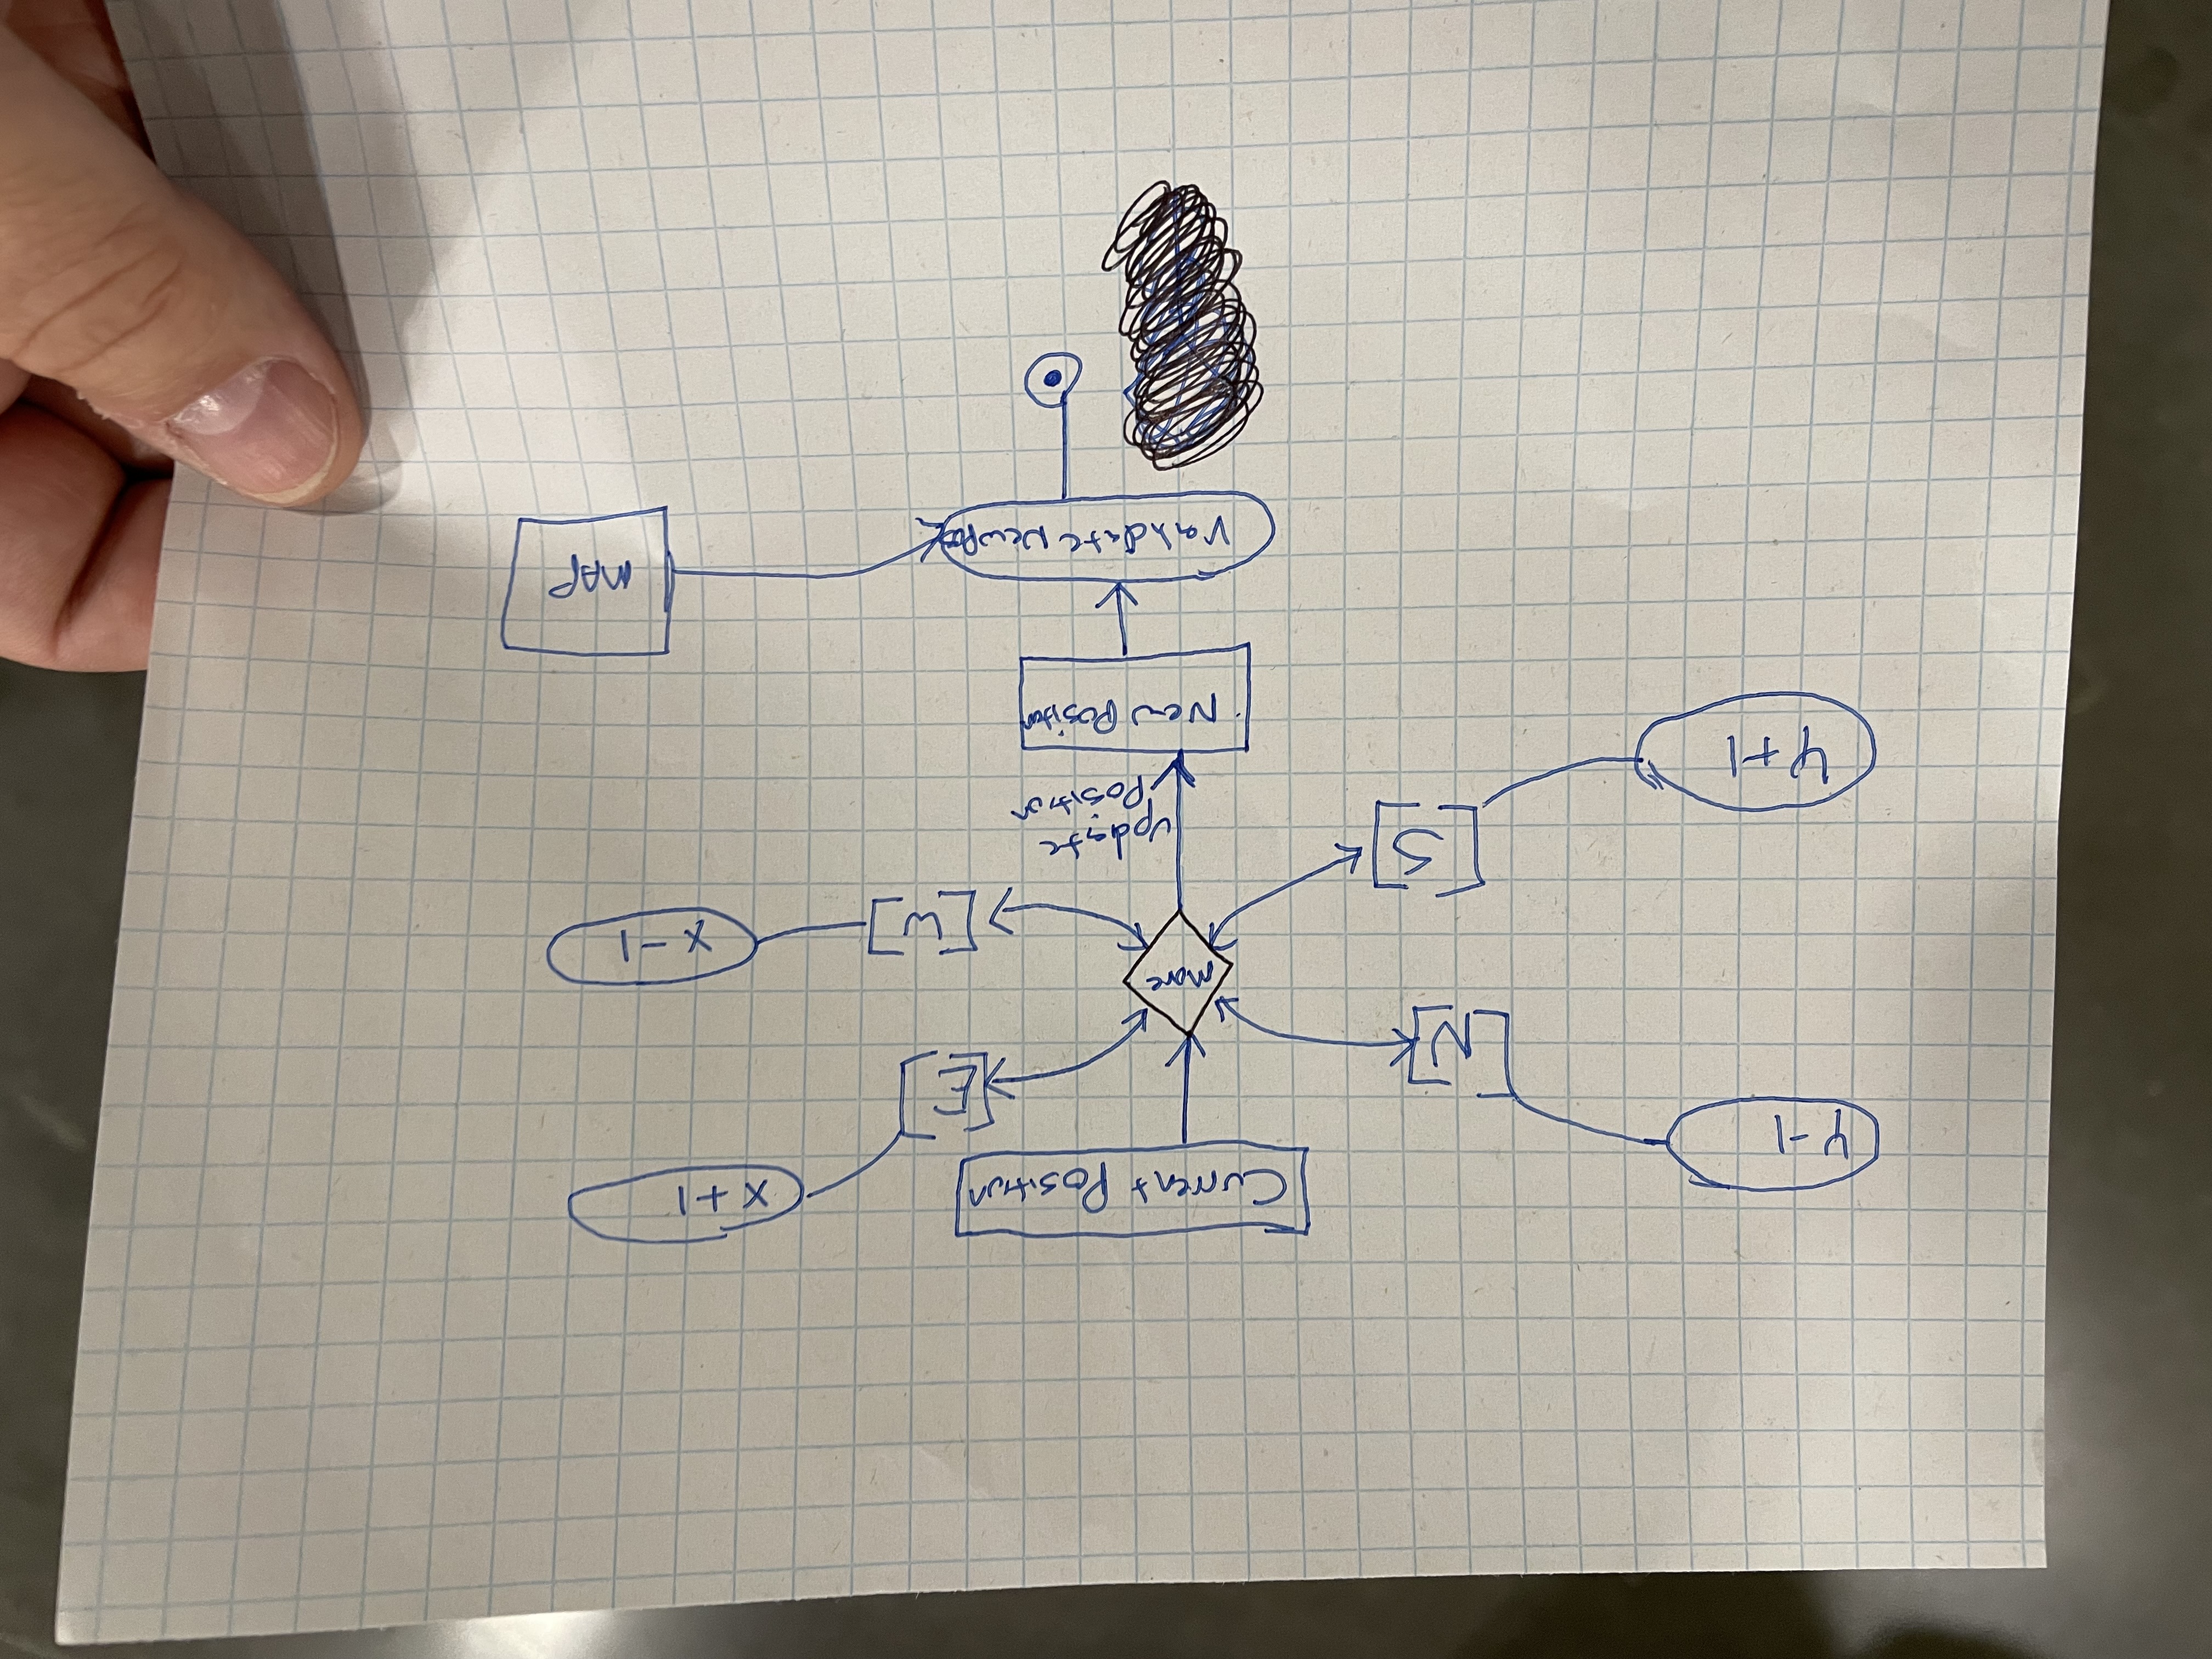 Current Position
x+1
Y-1
[E]
[N]
Move
[W]
x-1
[S]
update
Position
Y+1
New Position
MAP
Validate New Pos